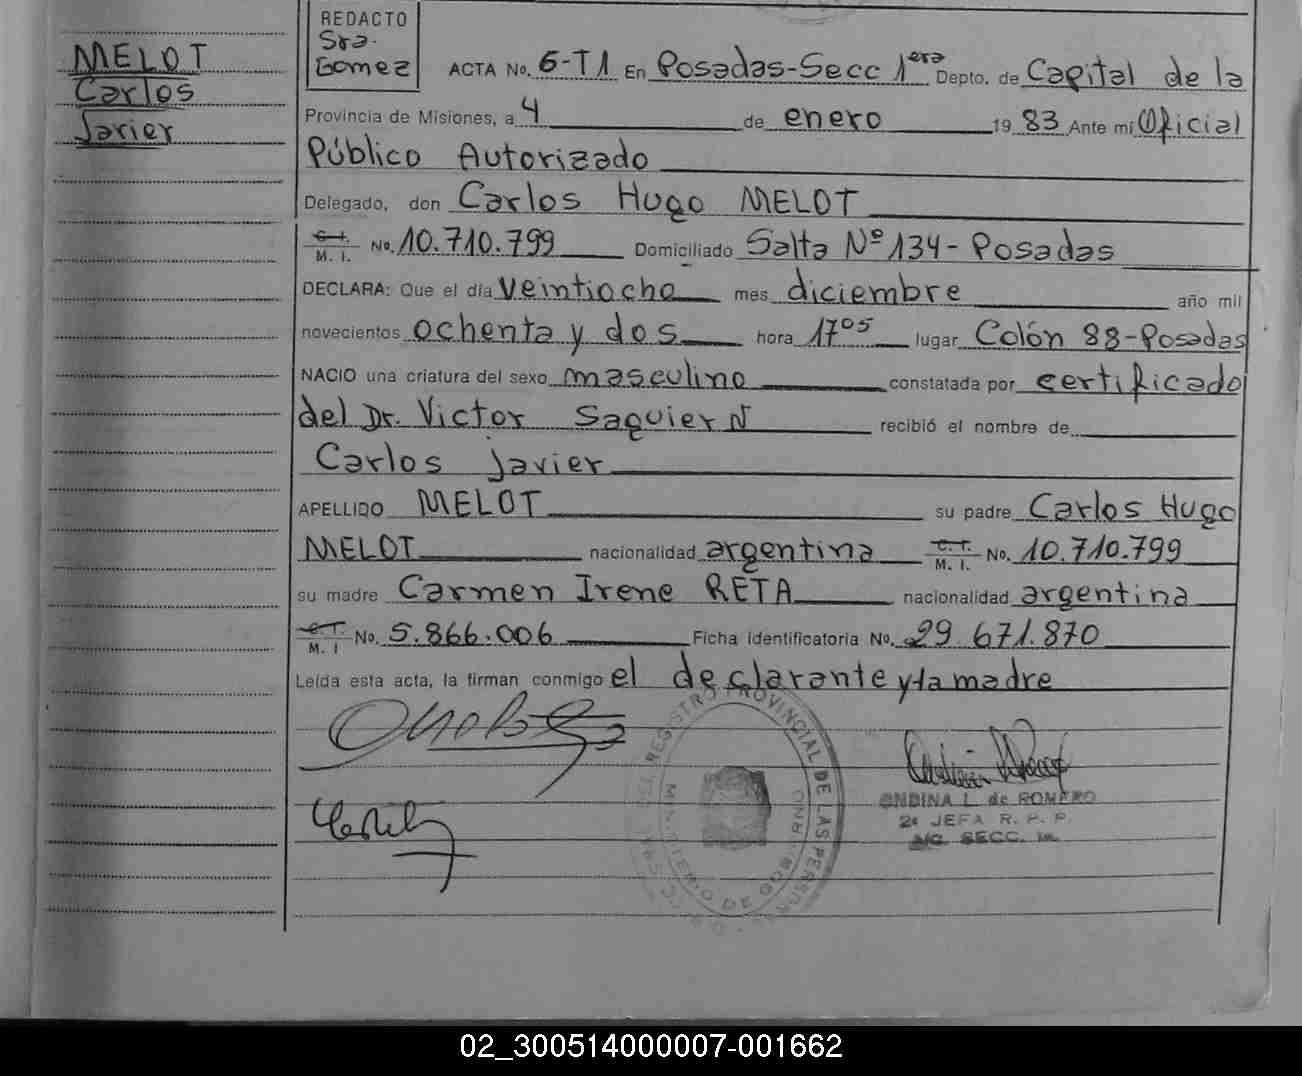 MELOT
Carlos
Javier
REDACTO
Sra.
Gomez
ACTA No. 6-T1 En Posadas-Secc 1era Depto. de Capital de la
Provincia de Misiones, a 4 de enero 19 83 Ante mí Oficial
Público Autorizado
Delegado, don Carlos Hugo MELOT
C.I. M. I. No. 10.710.799 Domiciliado Salta Nº 134-Posadas
DECLARA: Que el día veintiocho mes diciembre año mil
novecientos ochenta y dos hora 1705 lugar Colón 88-Posadas
NACIO una criatura del sexo masculino constatada por certificado
del Dr. Victor Saguier N recibió el nombre de
Carlos Javier
APELLIDO MELOT su padre Carlos Hugo
MELOT nacionalidad argentina C.I. M. I. No. 10.710.799
su madre Carmen Irene RETA nacionalidad argentina
C.I. M. I No. 5.866.006 Ficha identificatoria No. 29.671.870
Leída esta acta, la firman conmigo el declarante y la madre
REGISTRO PROVINCIAL DE LAS PERSONAS
MINISTERIO DE GOBIERNO
ONDINA L. de ROMERO
2ª JEFA R. P. P.
SECC. 1a.
02_300514000007-001662